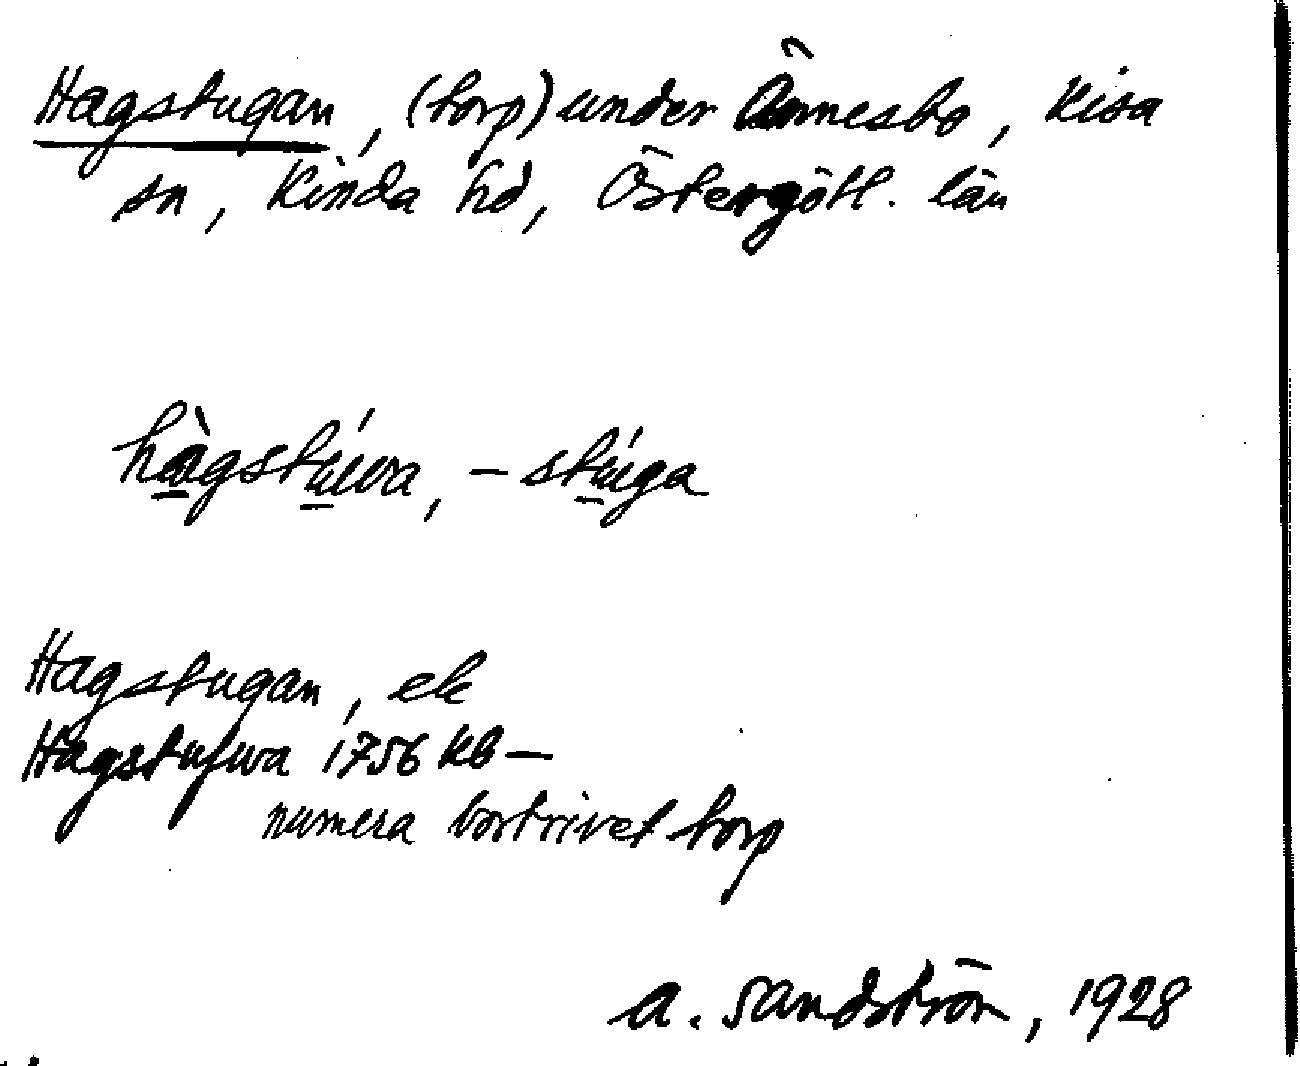 Hagstugan, (torp) under Ännesbo, Kisa
sn, Kinda hd, Östergötl. län
hàgstúwa, - stúga
Hagstugan, ek
Hagstufwa 1756 KB —
numera bortrivet torp
A. Sandström, 1928